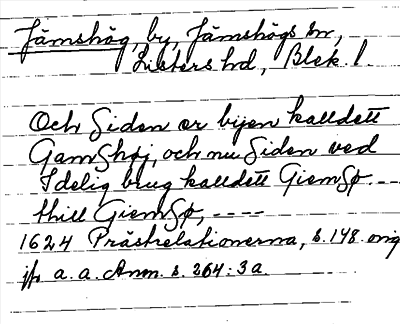 Jämshög, by, Jämshögs sn,
Listers hd, Blek. l.
Och Siden er byen kalldett
Gamshøj och nu Siden ved
Idelig brug kalldett Giemsø. --
thill Giemsø, ----
1624 Prästrelationerna, s. 148. orig
jfr a. a. Anm. s. 264: 3a.